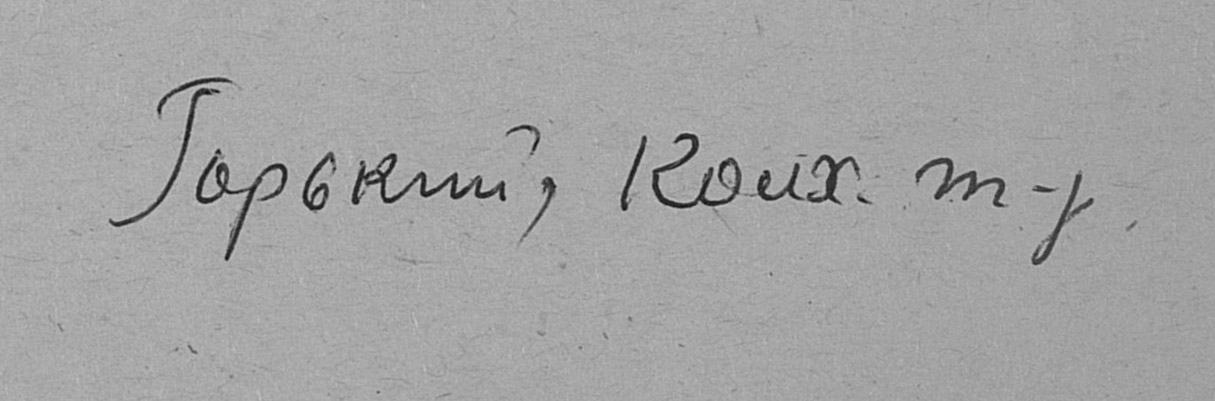 Горький, Колх. т-р.